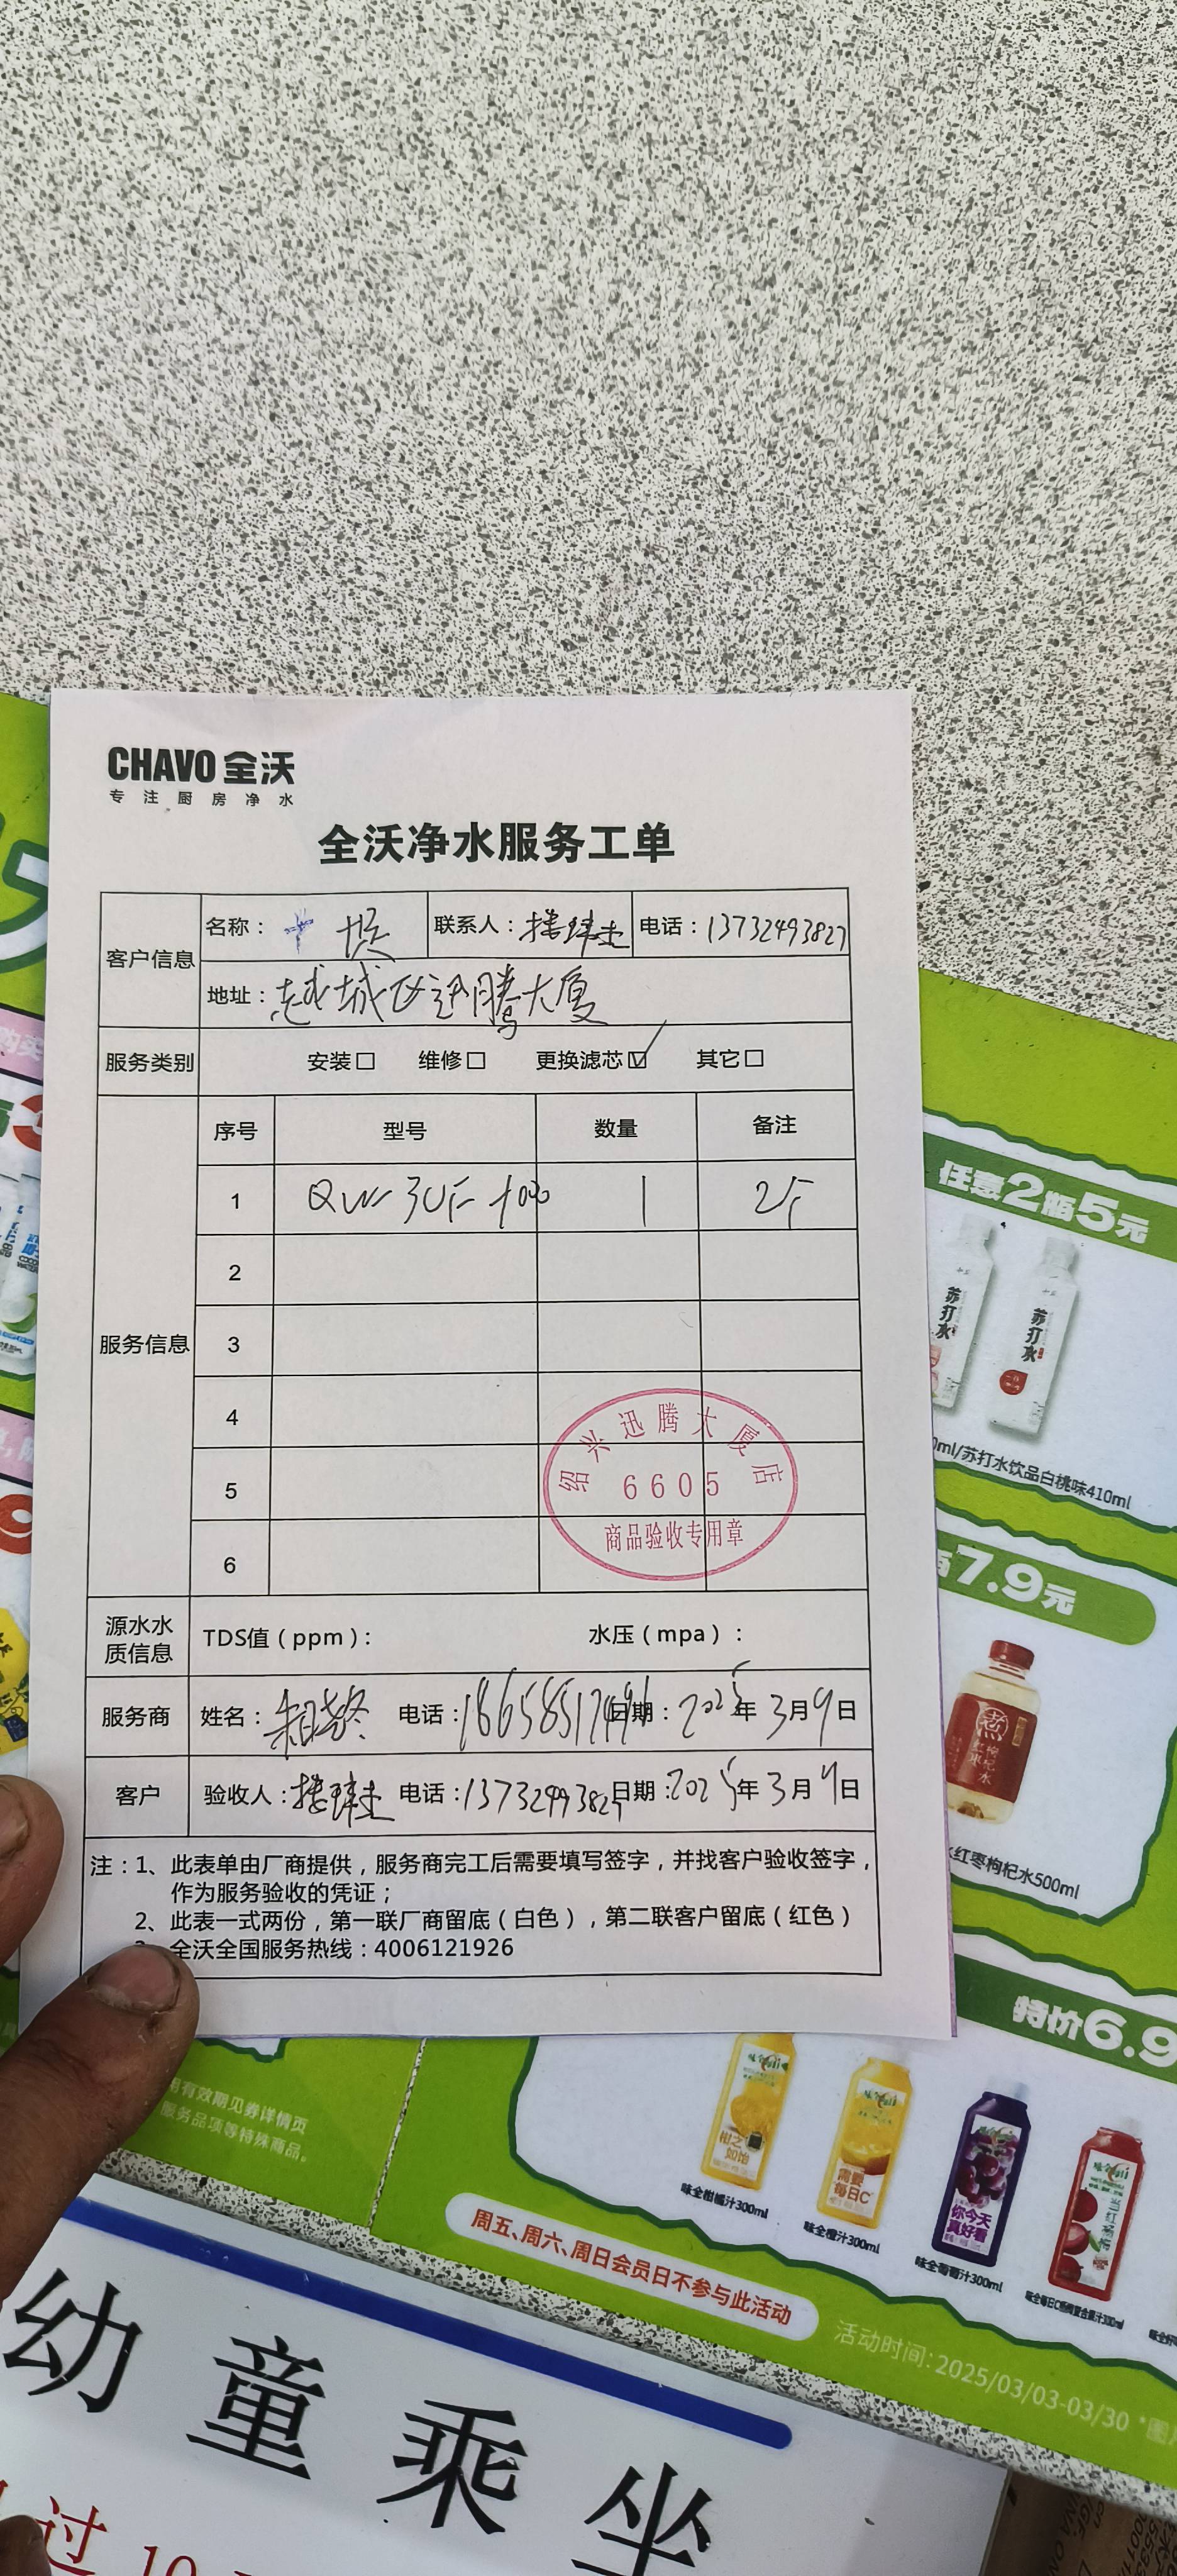 CHAVO 全沃
专注厨房净水
全沃净水服务工单
客户信息
名称：
联系人：
电话：13732493827
地址：越城区迅腾大厦
服务类别
安装□ 维修□ 更换滤芯☑ 其它□
服务信息
序号 型号 数量 备注
1 QW-3UF-1000 1 2F
2
3
4
5
6
绍兴迅腾大厦店
6605
商品验收专用章
源水水质信息
TDS值（ppm）： 水压（mpa）：
服务商 姓名： 电话： 日期：2025年3月9日
客户 验收人： 电话：13732493827 日期：2025年3月9日
注：1、此表单由厂商提供，服务商完工后需要填写签字，并找客户验收签字，
作为服务验收的凭证；
2、此表一式两份，第一联厂商留底（白色），第二联客户留底（红色）
全沃全国服务热线：4006121926
任意2瓶5元
苏打水
苏打水
0ml/苏打水饮品白桃味410ml
7.9元
煮
红枣枸杞水
红枣枸杞水500ml
特价6.9
味全柑橘汁300ml
需要每日C
味全橙汁300ml
你今天真好看
味全葡萄汁300ml
用有效期见券详情页
服务品项等特殊商品。
周五、周六、周日会员日不参与此活动
活动时间：2025/03/03-03/30
幼童乘坐
过10